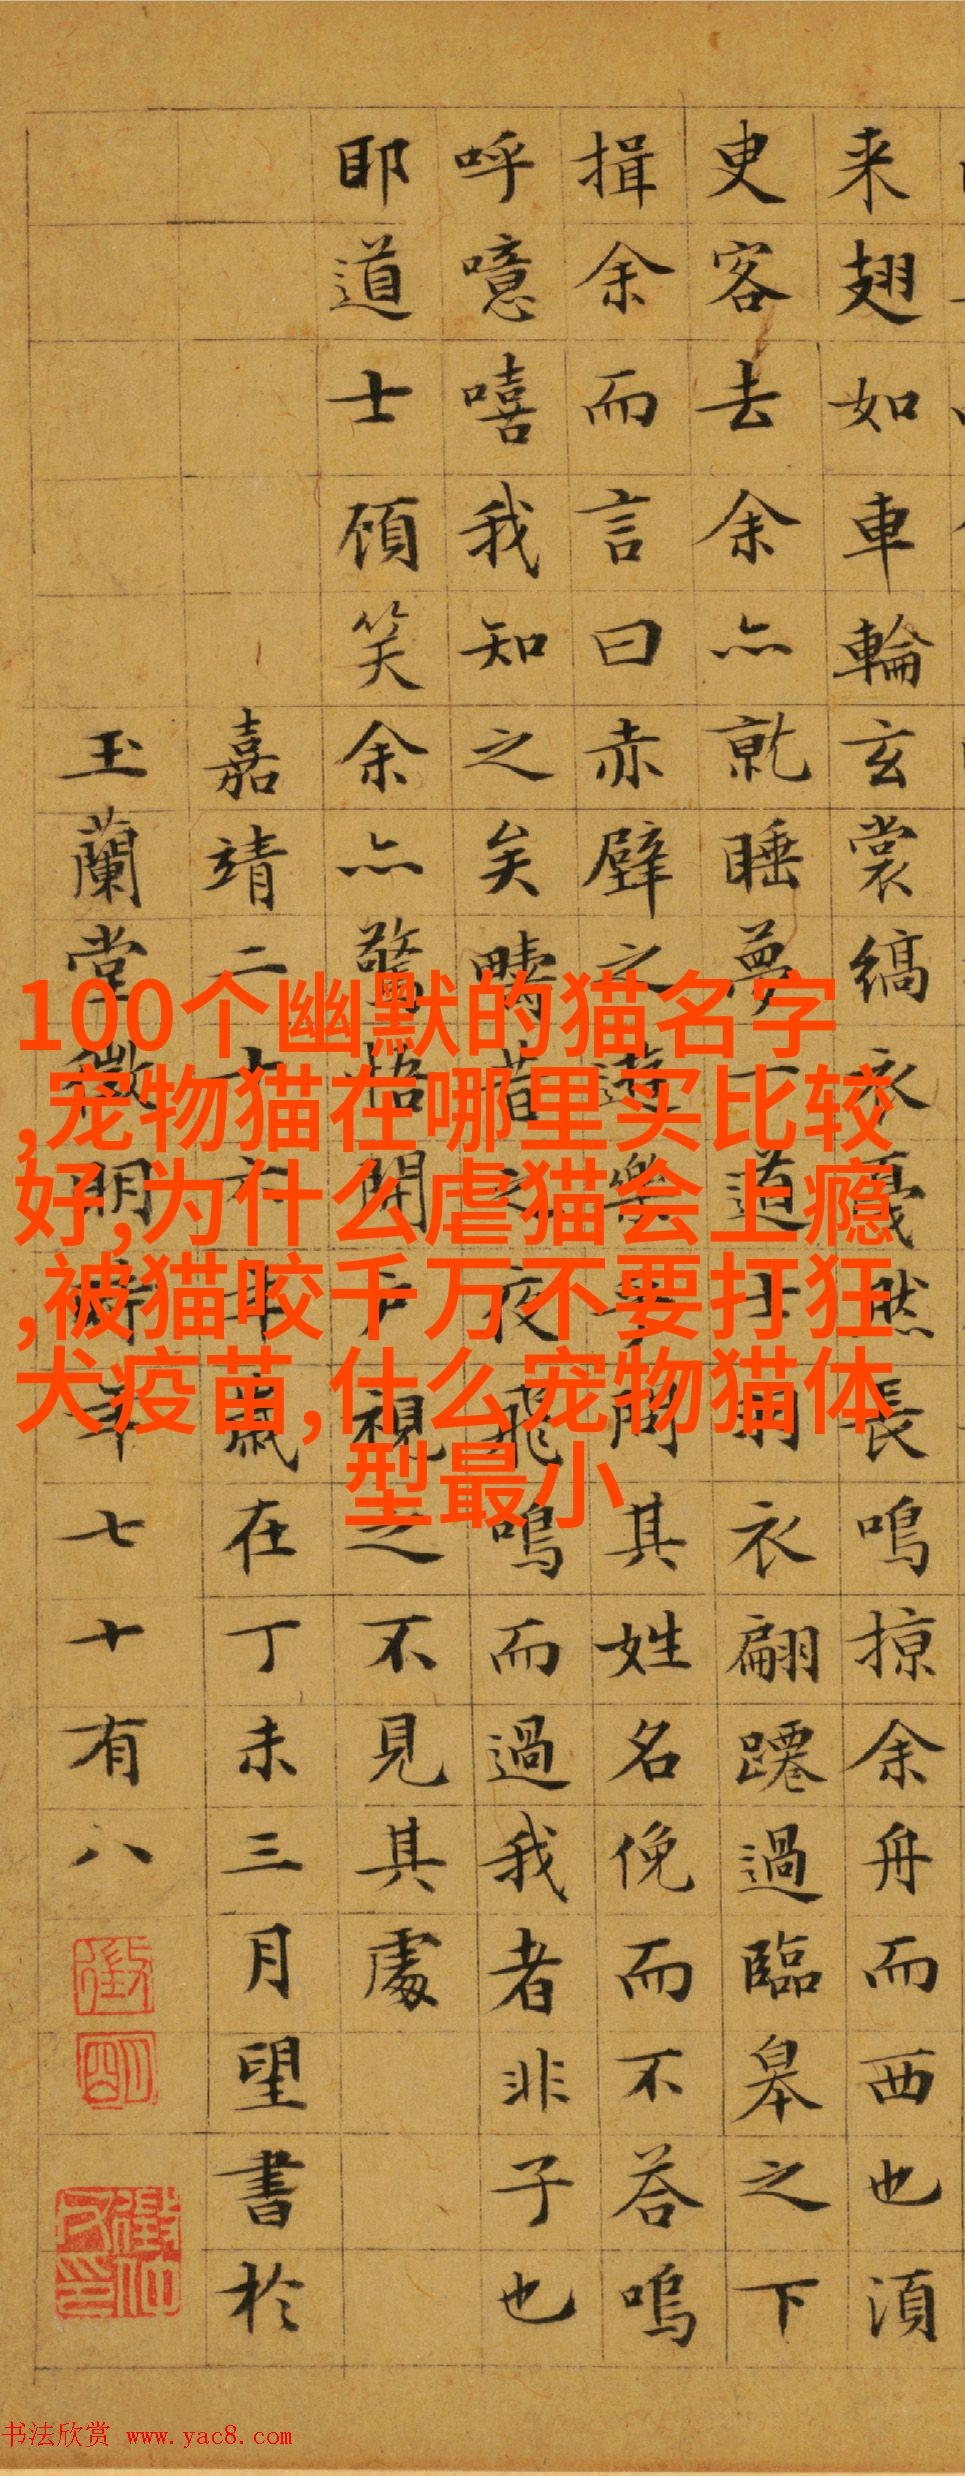 来翅如車輪玄裳縞衣戛然長鳴掠余舟而西也湏
臾客去余亦就睡夢一道士羽衣翩躚過臨皋之下
揖余而言曰赤壁之遊樂乎問其姓名俛而不荅嗚
呼噫嘻我知之矣疇昔之夜飛鳴而過我者非子也
耶道士顧笑余亦驚悟開戶視之不見其處
嘉靖二十六年歲在丁未三月望書於
玉蘭堂徵明時年七十有八
100个幽默的猫名字
,宠物猫在哪里买比较
好,为什么虐猫会上瘾
,被猫咬千万不要打狂
犬疫苗,什么宠物猫体
型最小
书法欣赏 www.yac8.com